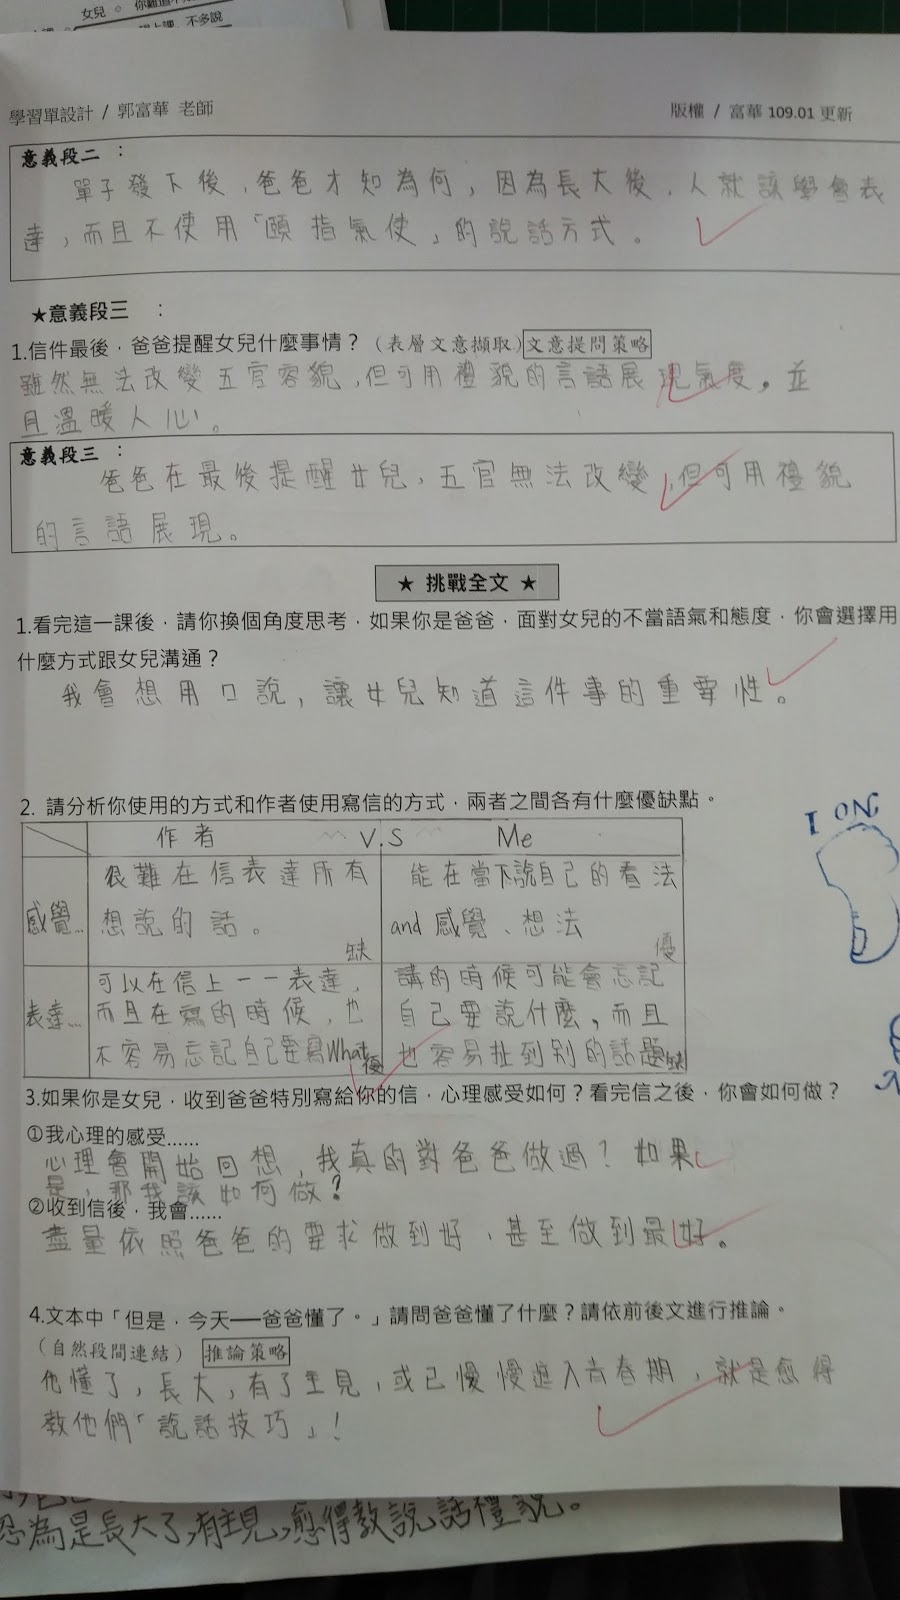 女兒。
不多說
學習單設計 / 郭富華 老師
版權 / 富華 109.01 更新
意義段二 :
單子發下後,爸爸才知為何,因為長大後,人就該學會表
達,而且不使用「頤指氣使」的說話方式。
★意義段三 :
1.信件最後,爸爸提醒女兒什麼事情?(表層文意擷取)文意提問策略
雖然無法改變五官容貌,但可用禮貌的言語展現氣度。並
且溫暖人心。
意義段三 :
爸爸在最後提醒女兒,五官無法改變,但可用禮貌
的言語展現。
★ 挑戰全文 ★
1.看完這一課後,請你換個角度思考,如果你是爸爸,面對女兒的不當語氣和態度,你會選擇用
什麼方式跟女兒溝通?
我會想用口說,讓女兒知道這件事的重要性。
2. 請分析你使用的方式和作者使用寫信的方式,兩者之間各有什麼優缺點。
作者 V.S Me
感覺… 很難在信表達所有
想說的話。 缺
能在當下說自己的看法
and 感覺、想法 優
表達… 可以在信上一一表達,
而且在寫的時候,也
不容易忘記自己要寫What 優
講的時候可能會忘記
自己要說什麼,而且
也容易扯到別的話題 缺
3.如果你是女兒,收到爸爸特別寫給你的信,心理感受如何?看完信之後,你會如何做?
①我心理的感受……
心理會開始回想,我真的對爸爸做過?如果
是,那我該如何做?
②收到信後,我會……
盡量依照爸爸的要求做到好,甚至做到最好。
4.文本中「但是,今天──爸爸懂了。」請問爸爸懂了什麼?請依前後文進行推論。
(自然段間連結) 推論策略
他懂了,長大,有了主見,或已慢慢進入青春期,就是愈得
教他們「說話技巧」!
為是長大了,有主見,愈得教說話禮貌。
I ON